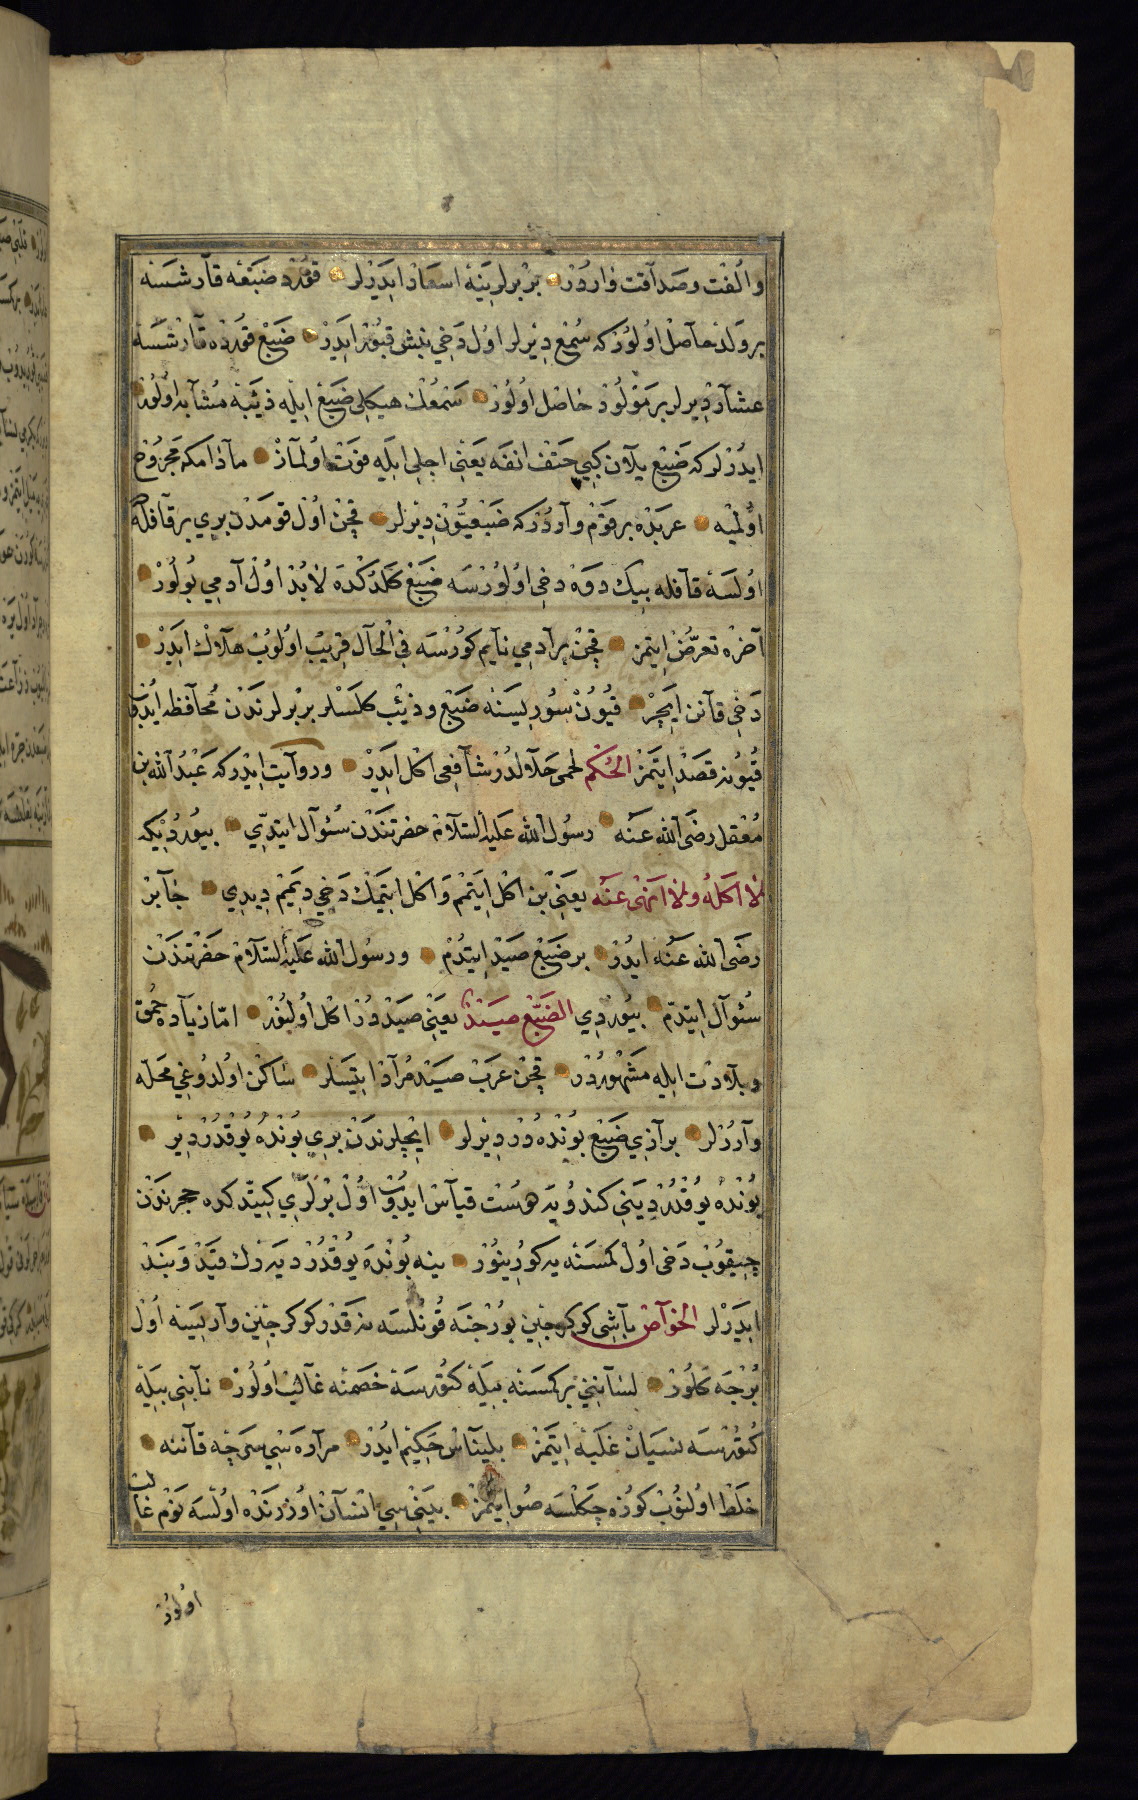 والفت وصداقت واردر بربرلرینه اسعاد ایدرلر قورد ضبعه قارشسه
برولد حاصل اولورکه سمع دیرلر اول دخی نبش قبور ایدر ضبع قورده قارشسه
عشار دیرلر بر مولود حاصل اولور سمعك هیكلی ضبع ایله ذئبه مشابه اولور
ایدرلر که ضبع یلان کبی حتف انفه یعنی اجلی ایله فوت اولماز مادامکه مجروح
اولمیه عربده بر قوم واردر که ضبعیون دیرلر قچن اول قومدن بری بر قافله
اولسه قافله بیك دوه دخی اولورسه ضبع کلدکده لابد اول آدمی بولور
آخره تعرض ایتمز قچن بر آدمی نایم کورسه فی الحال قریب اولوب هلاك ایدر
دخی قانن ایچر قیون سوریسنه ضبع و ذئب کلسلر بربرلرندن محافظه ایدوب
قیونه قصد ایتمز الحكم لحمی حلالدر شافعی اكل ایدر و روایت ایدر که عبد الله بن
مغفل رضی الله عنه رسول الله علیه السلام حضرتندن سئوال ایتدی بیوردیکه
لا اكله ولا انهى عنه یعنی بن اكل ایتمم و اكل ایتمك دخی دیمیم دیدی جابر
رضی الله عنه ایدر بر ضبع صید ایتدم و رسول الله علیه السلام حضرتندن
سئوال ایتدم بیوردی الضبع صید یعنی صیددر اكل اولنور اما زیاده حمق
و بلادت ایله مشهوردر قچن عرب صید مراد ایتسلر ساکن اولدوغی محله
واررلر برازی ضبع بونده در دیرلر ایچلرندن بری بونده یوقدر دیر
بونده یوقدر دینی کندویه هوست قیاس ایدوب اول بزلری کیتدکده حجرندن
چیقوب دخی اول کمسنه یه کورینور ینه بونده یوقدر دیه رك قید و بند
ایدرلر الخواص باشی کوکرجین بورجنه قونلسه نه قدر کوکرجین واریسه اول
برجه کلور لسانینی بر کمسنه بیله کتورسه خصمنه غالب اولور نابنی بیله
کتورسه نسیان غلبه ایتمز بلیناس حکیم ایدر مراره سی سرچه قاننه
خلط اولنوب کوزه چکلسه صو ایتمز بینی سی انسان اوزرنده اولسه نوم غالب
اولور